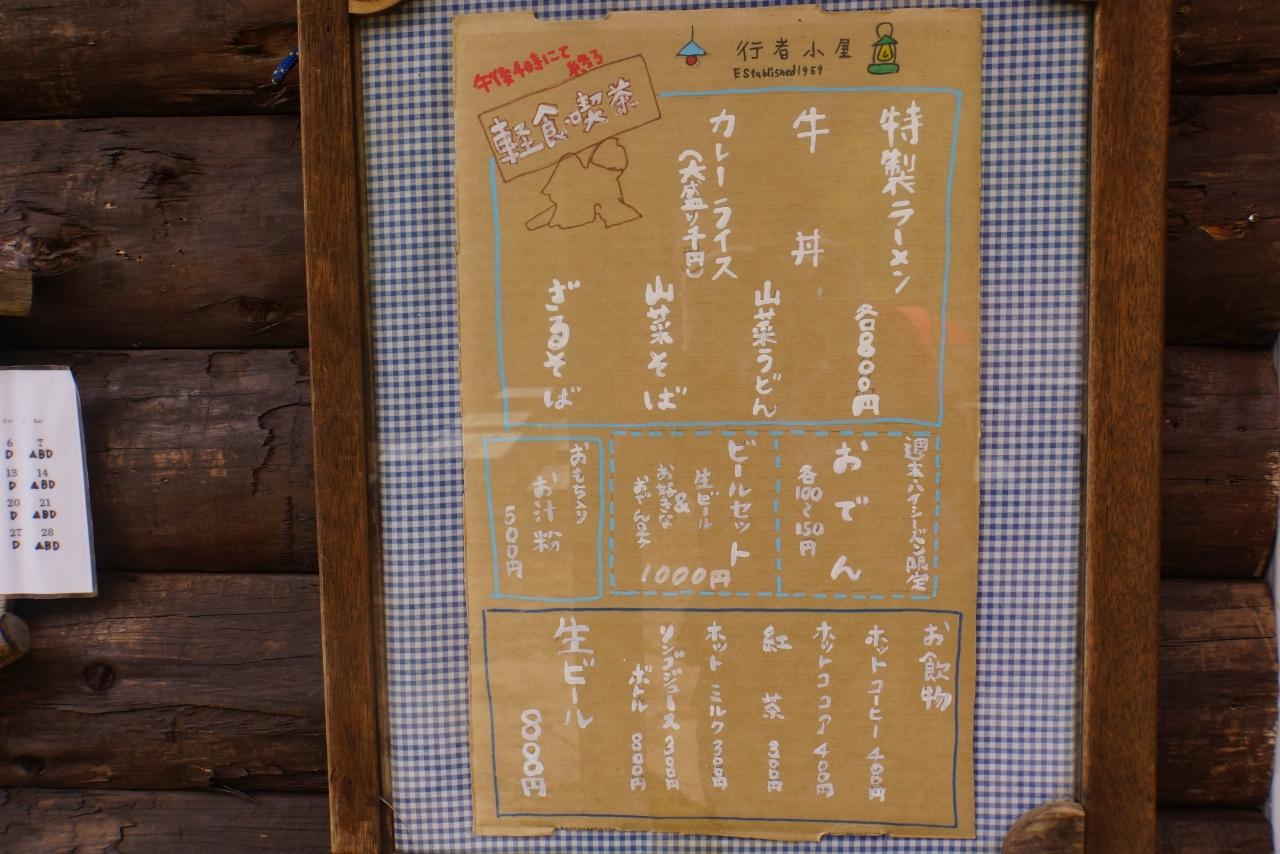 行者小屋
EStablished1959
午後4時にて
終る
軽食・喫茶
特製ラーメン
牛丼
カレーライス
(大盛り千円)
各800円
山菜うどん
山菜そば
ざるそば
週末・ハイシーズン限定
おでん
各100〜150円
ビールセット
生ビール
&
お好きな
1000円
おもち入り
お汁粉
500円
お飲物
ホットコーヒー 400円
ホットココア 400円
紅茶 300円
ホットミルク 300円
リンゴジュース 300円
ボトル 800円
生ビール
800円
6 7
D ABD
13 14
D ABD
20 21
D ABD
27 28
D ABD